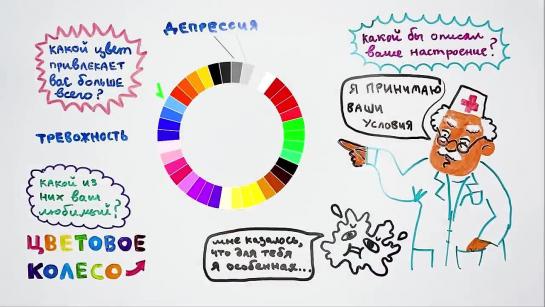 ДЕПРЕССИЯ
КАКОЙ ЦВЕТ
ПРИВЛЕКАЕТ
ВАС БОЛЬШЕ
ВСЕГО?
какой бы описал
ваше настроение?
Я ПРИНИМАЮ
ВАШИ
УСЛОВИЯ
ТРЕВОЖНОСТЬ
КАКОЙ ИЗ
НИХ ВАШ
ЛЮБИМЫЙ?
ЦВЕТОВОЕ
КОЛЕСО
мне казалось,
что для тебя
я особенная...